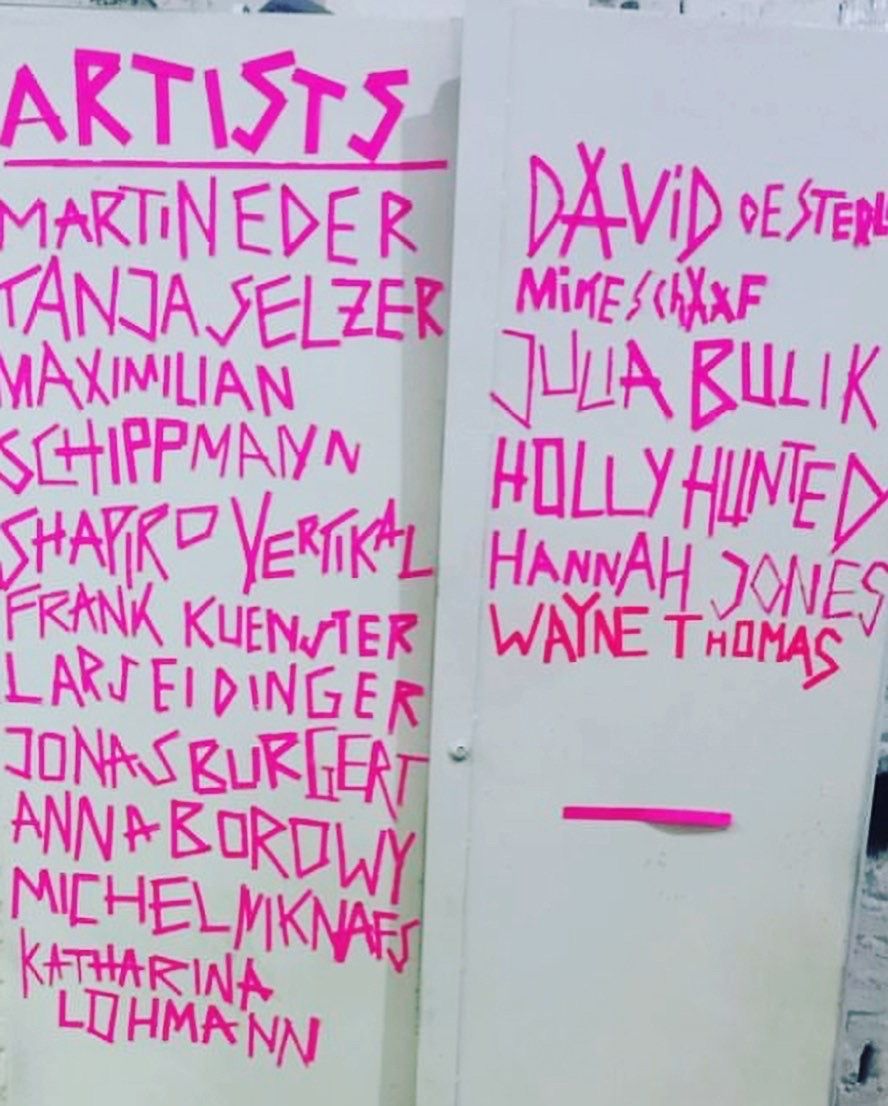 ARTISTS
MARTIN EDER
TANJA SELZER
MAXIMILIAN
SCHIPPMANN
SHAPIRO VERTIKAL
FRANK KUENSTER
LARS EIDINGER
JONAS BURGERT
ANNA BOROWY
MICHEL MKNAFS
KATHARINA
LOHMANN
DAViD OESTERL
MiKE SChAXF
JULIA BULIK
HOLLY HUNTED
HANNAH JONES
WAYNE THOMAS